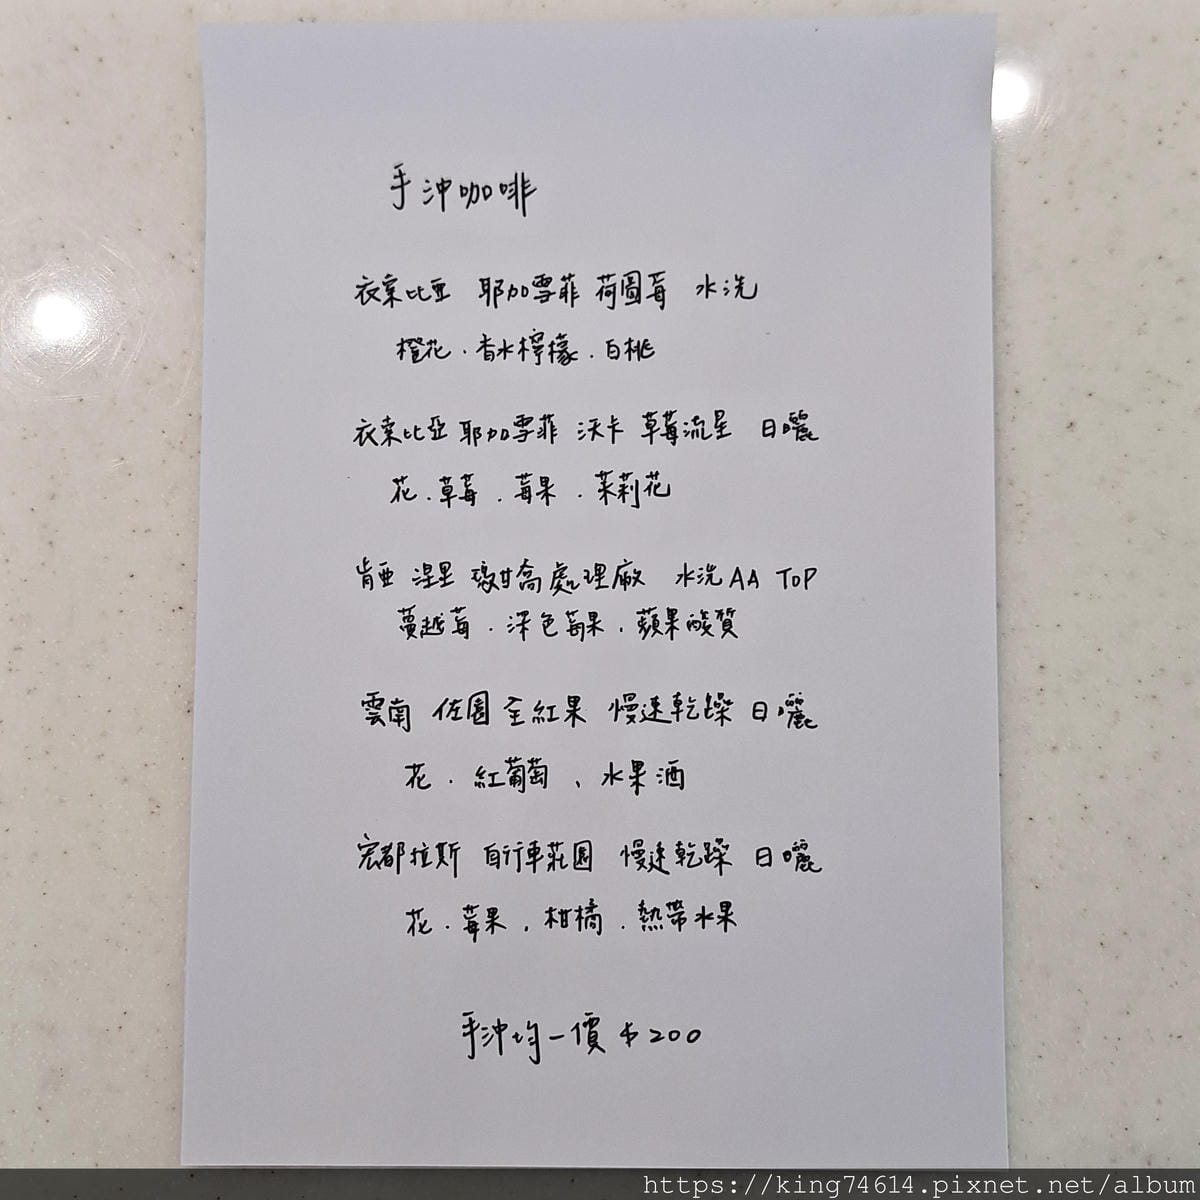 手沖咖啡
衣索比亞 耶加雪菲 荷圖莓 水洗
橙花．香水檸檬．白桃
衣索比亞 耶加雪菲 沃卡 草莓流星 日曬
花．草莓．莓果．茉莉花
肯亞 涅里 甘喬處理廠 水洗 AA TOP
蔓越莓．深色莓果．蘋果酸質
雲南 佐園 全紅果 慢速乾躁 日曬
花．紅葡萄、水果酒
宏都拉斯 自行車莊園 慢速乾躁 日曬
花．莓果．柑橘．熱帶水果
手沖均一價 $200
https://king74614.pixnet.net/album